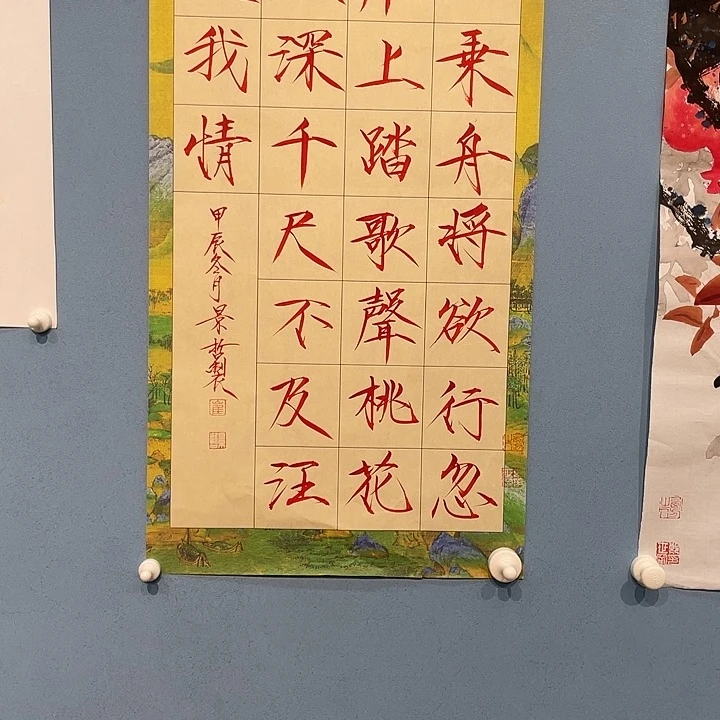 乘舟將欲行忽
上踏歌聲桃花
深千尺不及汪
我情
甲辰冬月景哲製